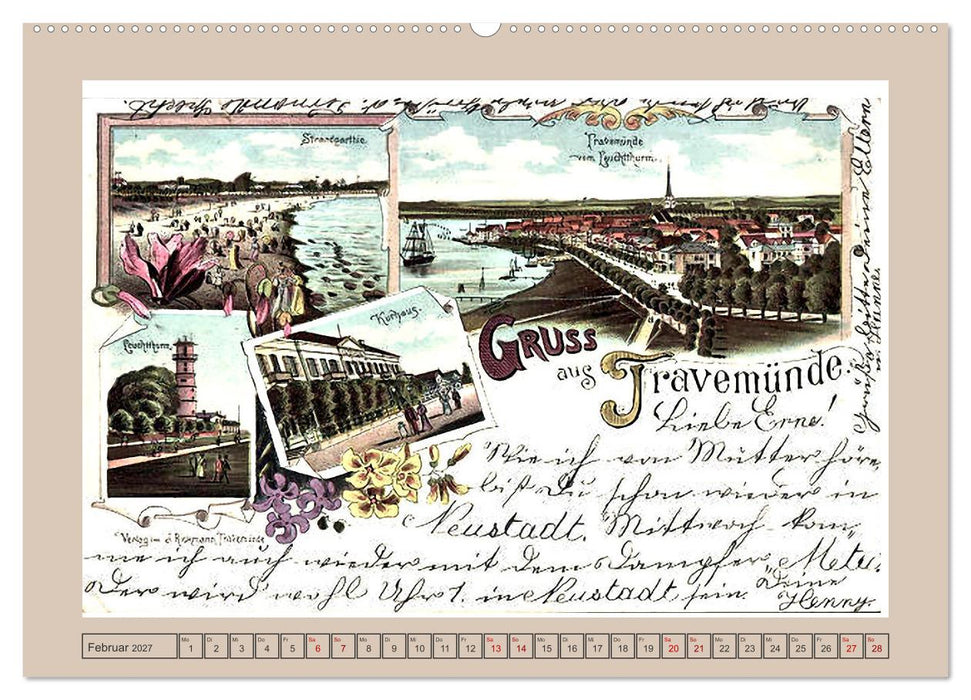 Strandparthie.
Travemünde
vom Leuchtthurm.
Leuchtthurm.
Kurhaus.
Gruss
aus
Travemünde
Liebe Erna!
Wie ich von Mutter höre,
bist Du schon wieder in
Neustadt. Mittwoch kom„
me ich auch wieder mit dem Dampfer
der wird wohl Uhr 1. in Neustadt sein. Deine
Henny.
Verlag im
Travemünde
Februar 2027
Mo Di Mi Do Fr Sa So Mo Di Mi Do Fr Sa So Mo Di Mi Do Fr Sa So Mo Di Mi Do Fr Sa So
1 2 3 4 5 6 7 8 9 10 11 12 13 14 15 16 17 18 19 20 21 22 23 24 25 26 27 28